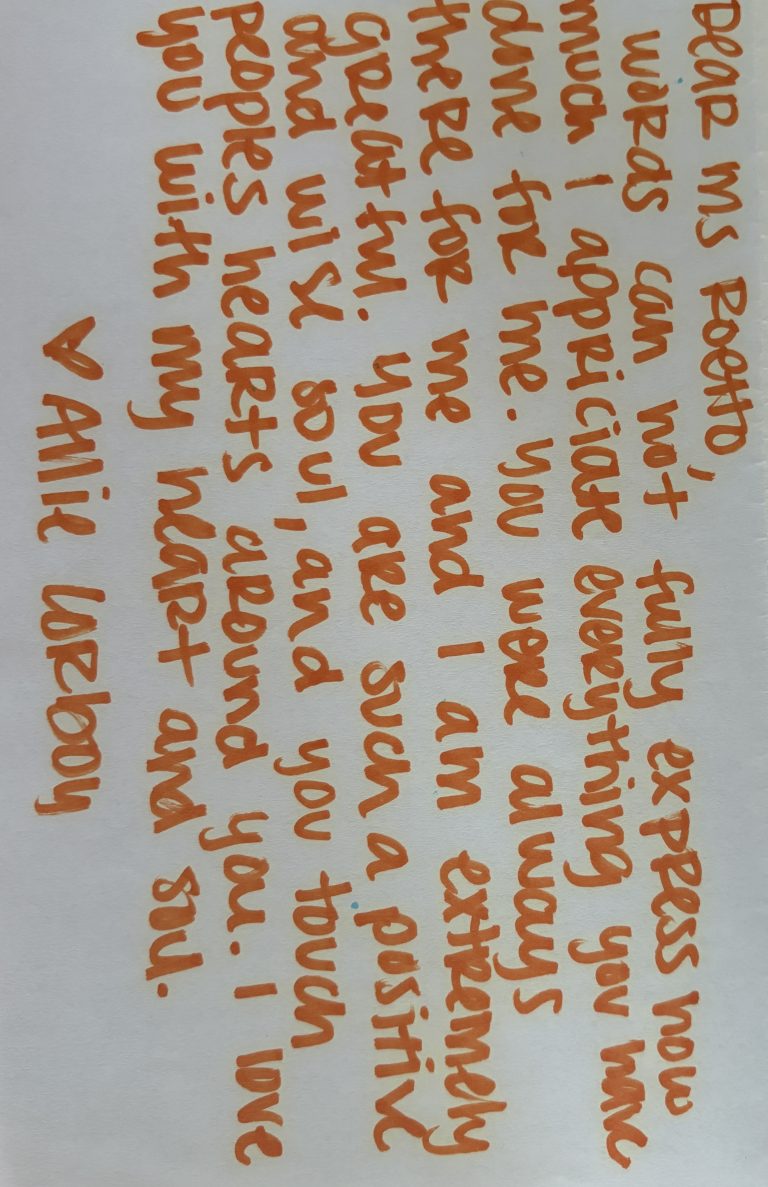 Dear ms Roetto,
words can not fully express how
much I appriciate everything you have
done for me. you were always
there for me and I am extremely
greatful. you are such a positive
and wise soul, and you touch
peoples hearts around you. I love
you with my heart and soul.
♥ Allie Corbooy